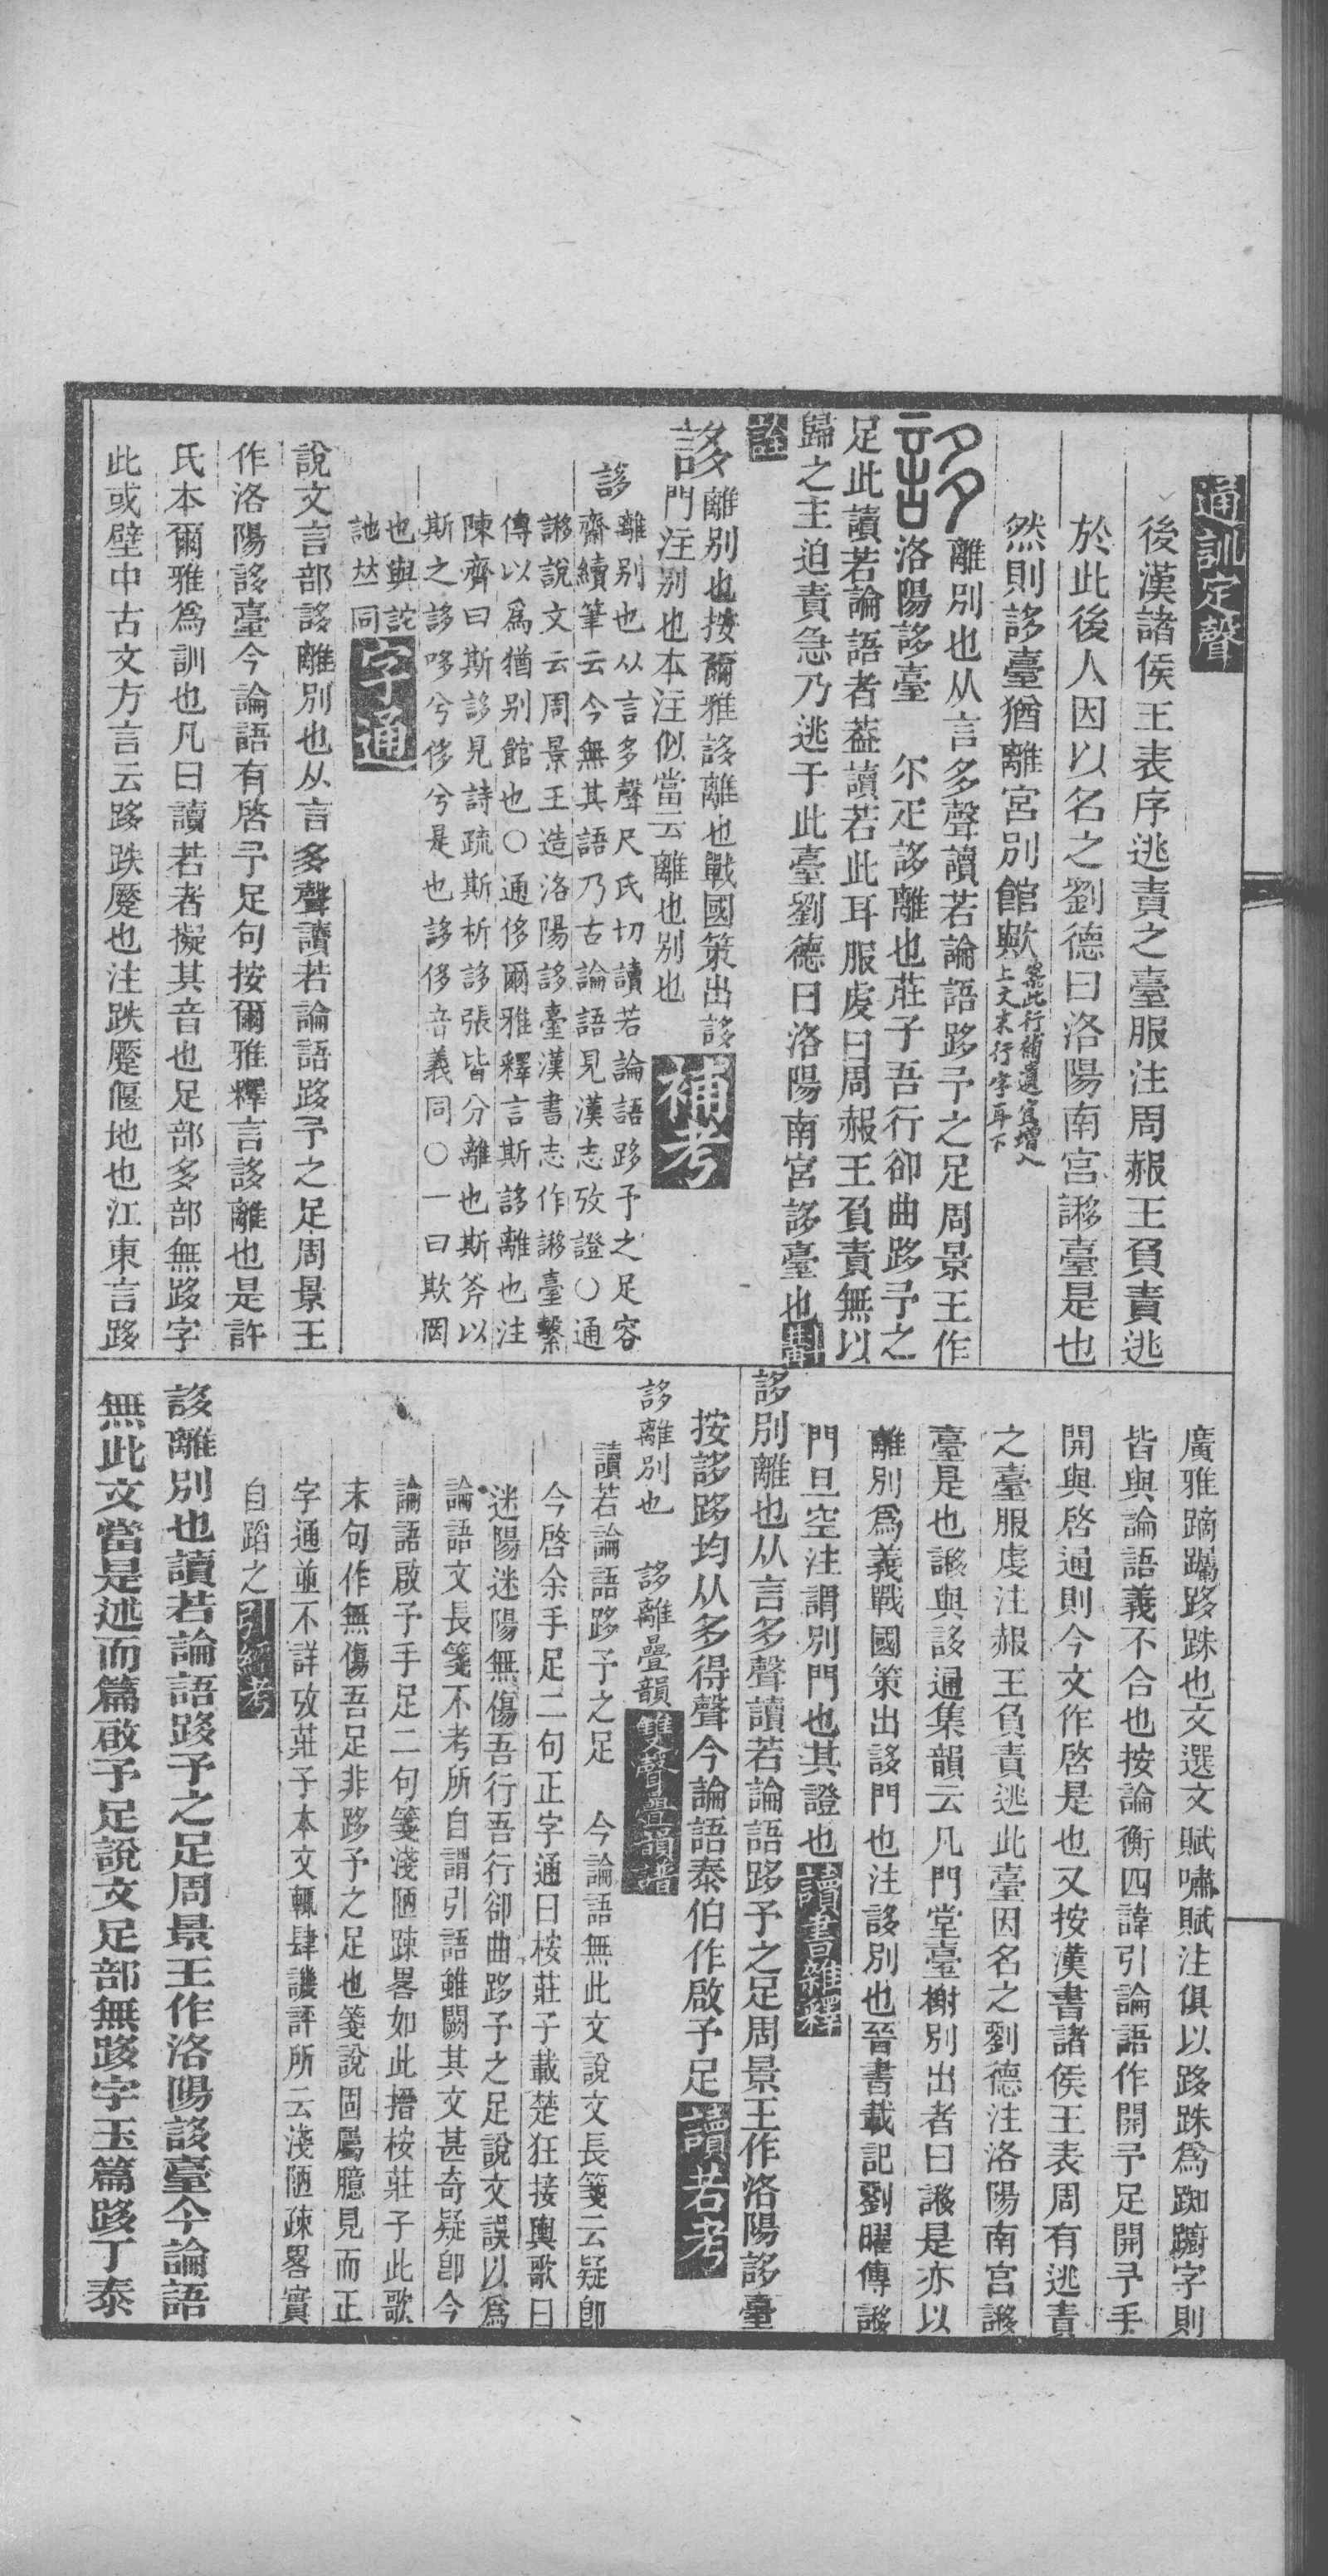 通訓定聲
後漢諸侯王表序逃責之臺服注周赧王負責逃
於此後人因以名之劉德曰洛陽南宮謻臺是也
然則誃臺猶離宮別館歟
案此行補遺宜增入
上文末行字再下
離別也从言多聲讀若論語跢予之足周景王作
洛陽誃臺 尔疋誃離也莊子吾行卻曲跢予之
足此讀若論語者葢讀若此耳服虔曰周赧王負責無以
歸之主迫責急乃逃于此臺劉德曰洛陽南宮誃臺也
詮
誃
離別也按爾雅誃離也戰國策出誃
門注別也本注似當云離也別也
補考
誃
離別也从言多聲尺氏切讀若論語跢予之足容
齋續筆云今無其語乃古論語見漢志攷證〇通
謻說文云周景王造洛陽誃臺漢書志作謻臺繫
傳以爲猶別館也〇通侈爾雅釋言斯誃離也注
陳齊曰斯誃見詩疏斯析誃張皆分離也斯斧以
斯之誃哆兮侈兮是也誃侈音義同〇一曰欺罔
也與訑
訑𠀤同
字通
說文言部誃離別也从言多聲讀若論語跢予之足周景王
作洛陽誃臺今論語有啓予足句按爾雅釋言誃離也是許
氏本爾雅爲訓也凡曰讀若者擬其音也足部多部無跢字
此或壁中古文方言云跢跌蹷也注跌蹷偃地也江東言跢
廣雅蹢躅跢跦也文選文賦嘯賦注俱以跢跦爲踟躕字則
皆與論語義不合也按論衡四諱引論語作開予足開予手
開與啓通則今文作啓是也又按漢書諸侯王表周有逃責
之臺服虔注赧王負責逃此臺因名之劉德注洛陽南宮謻
臺是也謻與誃通集韻云凡門堂臺榭別出者曰謻是亦以
離別爲義戰國策出誃門也注誃別也晉書載記劉曜傳謻
門旦空注謂別門也其證也
讀書雜釋
誃別離也从言多聲讀若論語跢予之足周景王作洛陽誃臺
按誃跢均从多得聲今論語泰伯作啟予足
讀若考
誃離別也 誃離疊韻
雙聲疊韻譜
讀若論語跢予之足 今論語無此文說文長箋云疑卽
今啓余手足二句正字通曰桉莊子載楚狂接輿歌曰
迷陽迷陽無傷吾行吾行卻曲跢予之足說文誤以爲
論語文長箋不考所自謂引語雖闕其文甚奇疑卽今
論語啟予手足二句箋淺陋疎畧如此搢桉莊子此歌
末句作無傷吾足非跢予之足也箋說固屬臆見而正
字通並不詳攷莊子本文輒肆譏評所云淺陋疎畧實
自蹈之
引經考
誃離別也讀若論語跢予之足周景王作洛陽誃臺今論語
無此文當是述而篇啟予足說文足部無跢字玉篇跢丁泰